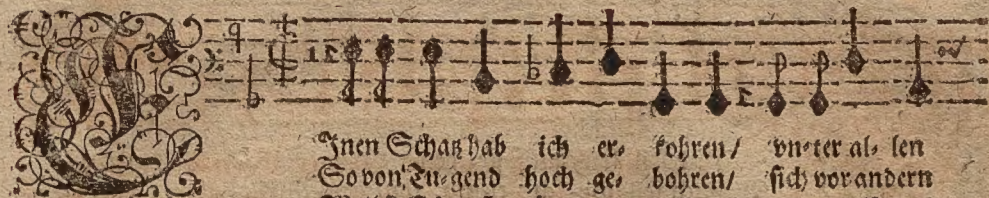 EInen Schatz hab ich er- kohren / vn-ter al- len
So von Tu-gend hoch ge- bohren / sich vor andern